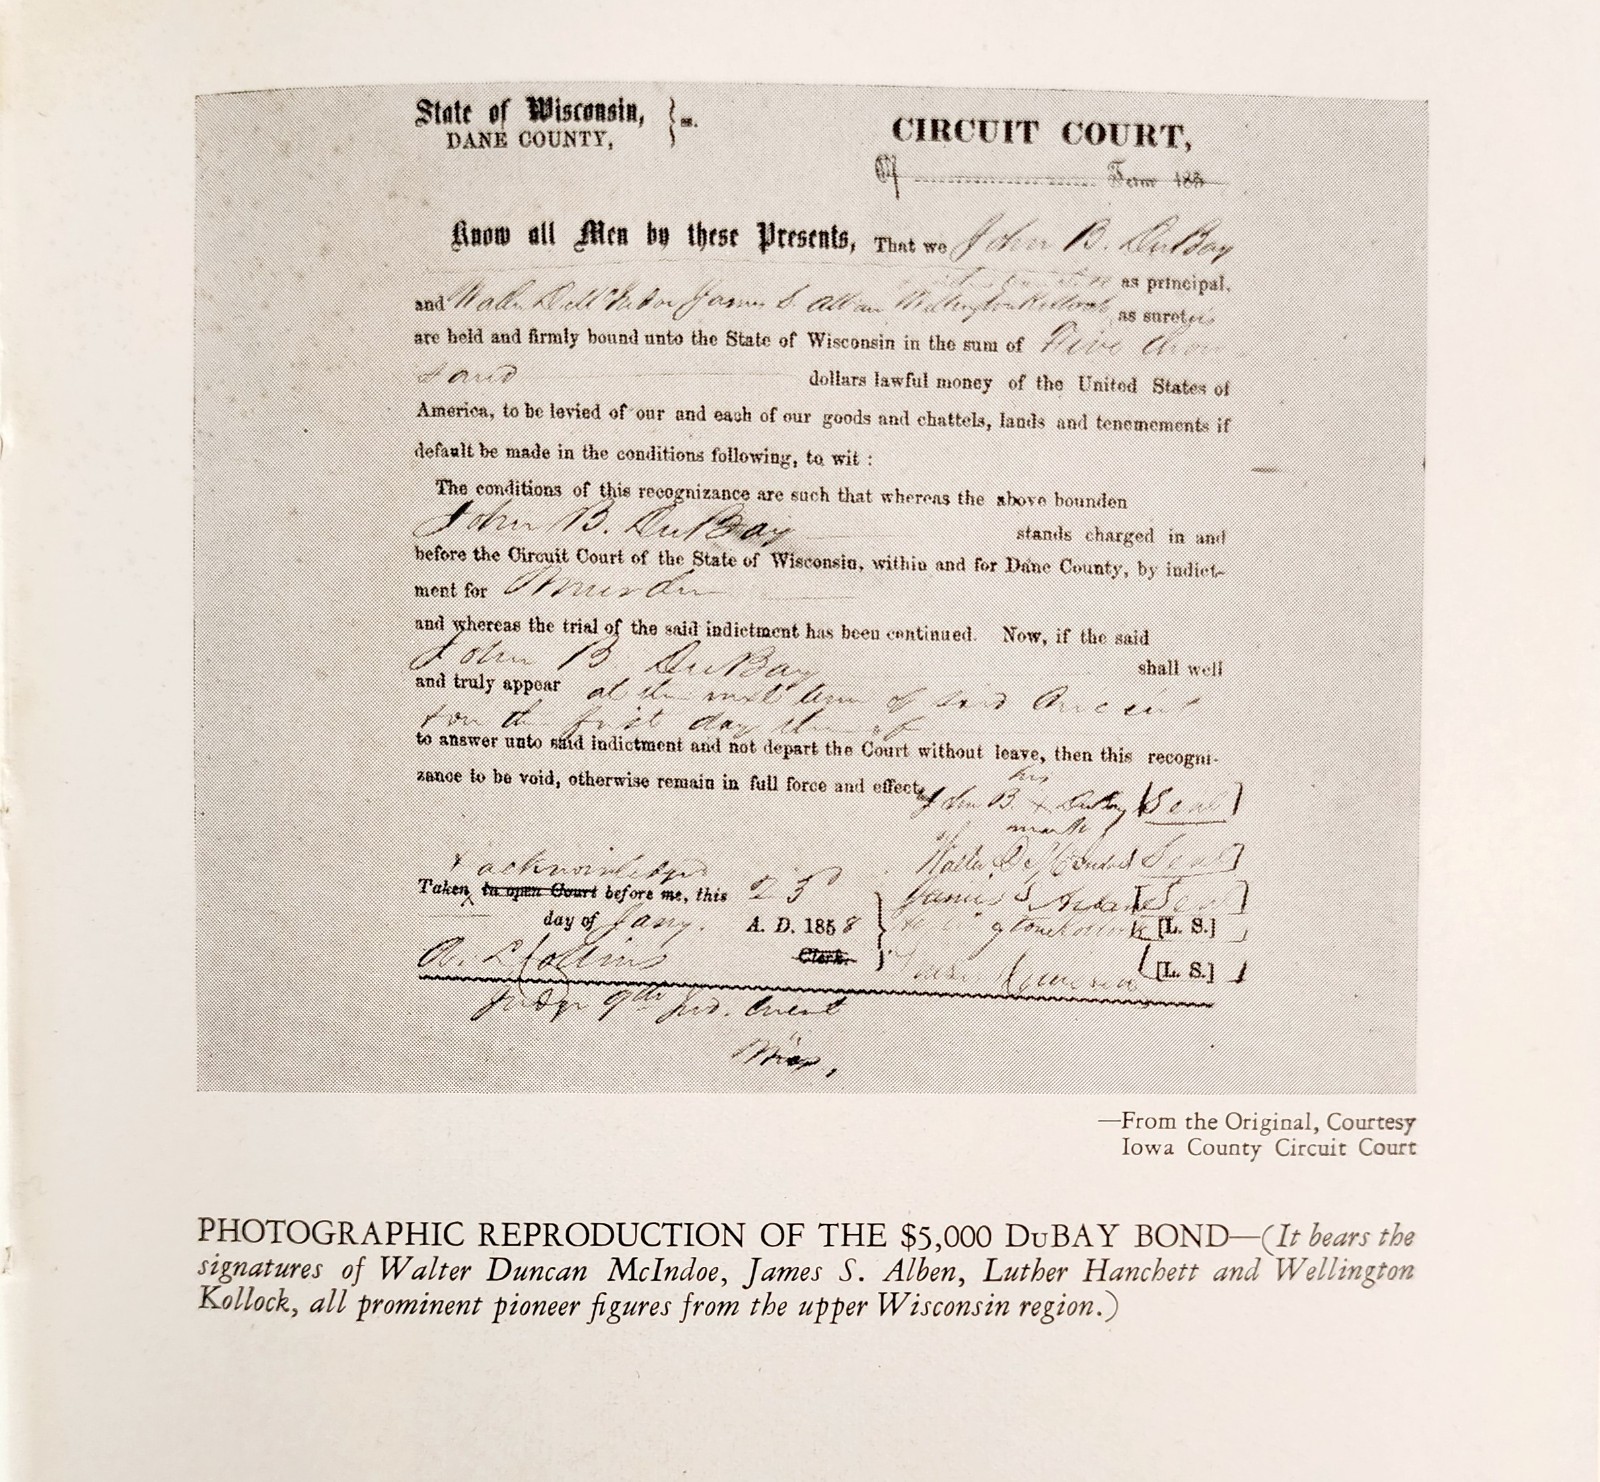 State of Wisconsin, } ss.
DANE COUNTY,
CIRCUIT COURT,
Of .......... Term 185
Know all Men by these Presents, That we John B. DuBay
as principal,
and Walter D McIndoe James S. Alban Wellington Kollock as sureties
are held and firmly bound unto the State of Wisconsin in the sum of Five thou
sand dollars lawful money of the United States of
America, to be levied of our and each of our goods and chattels, lands and tenemements if
default be made in the conditions following, to wit :
The conditions of this recognizance are such that whereas the above bounden
John B. DuBay stands charged in and
before the Circuit Court of the State of Wisconsin, within and for Dane County, by indict-
ment for Murder
and whereas the trial of the said indictment has been continued. Now, if the said
John B DuBay shall well
and truly appear at the next term of said Circuit
on the first day thereof
to answer unto said indictment and not depart the Court without leave, then this recogni-
zance to be void, otherwise remain in full force and effect.
his
John B. X DuBay [Seal]
mark
Walter D McIndoe [Seal]
& acknowledged
Taken in open Court before me, this 23d
James S Alban [Seal]
day of Jany. A. D. 1858
Wellington Kollock [L. S.]
A. L. Collins Clerk.
[L. S.]
Judge 9th Jud. Circuit
Wis,
—From the Original, Courtesy
Iowa County Circuit Court
PHOTOGRAPHIC REPRODUCTION OF THE $5,000 DuBAY BOND—(It bears the
signatures of Walter Duncan McIndoe, James S. Alben, Luther Hanchett and Wellington
Kollock, all prominent pioneer figures from the upper Wisconsin region.)